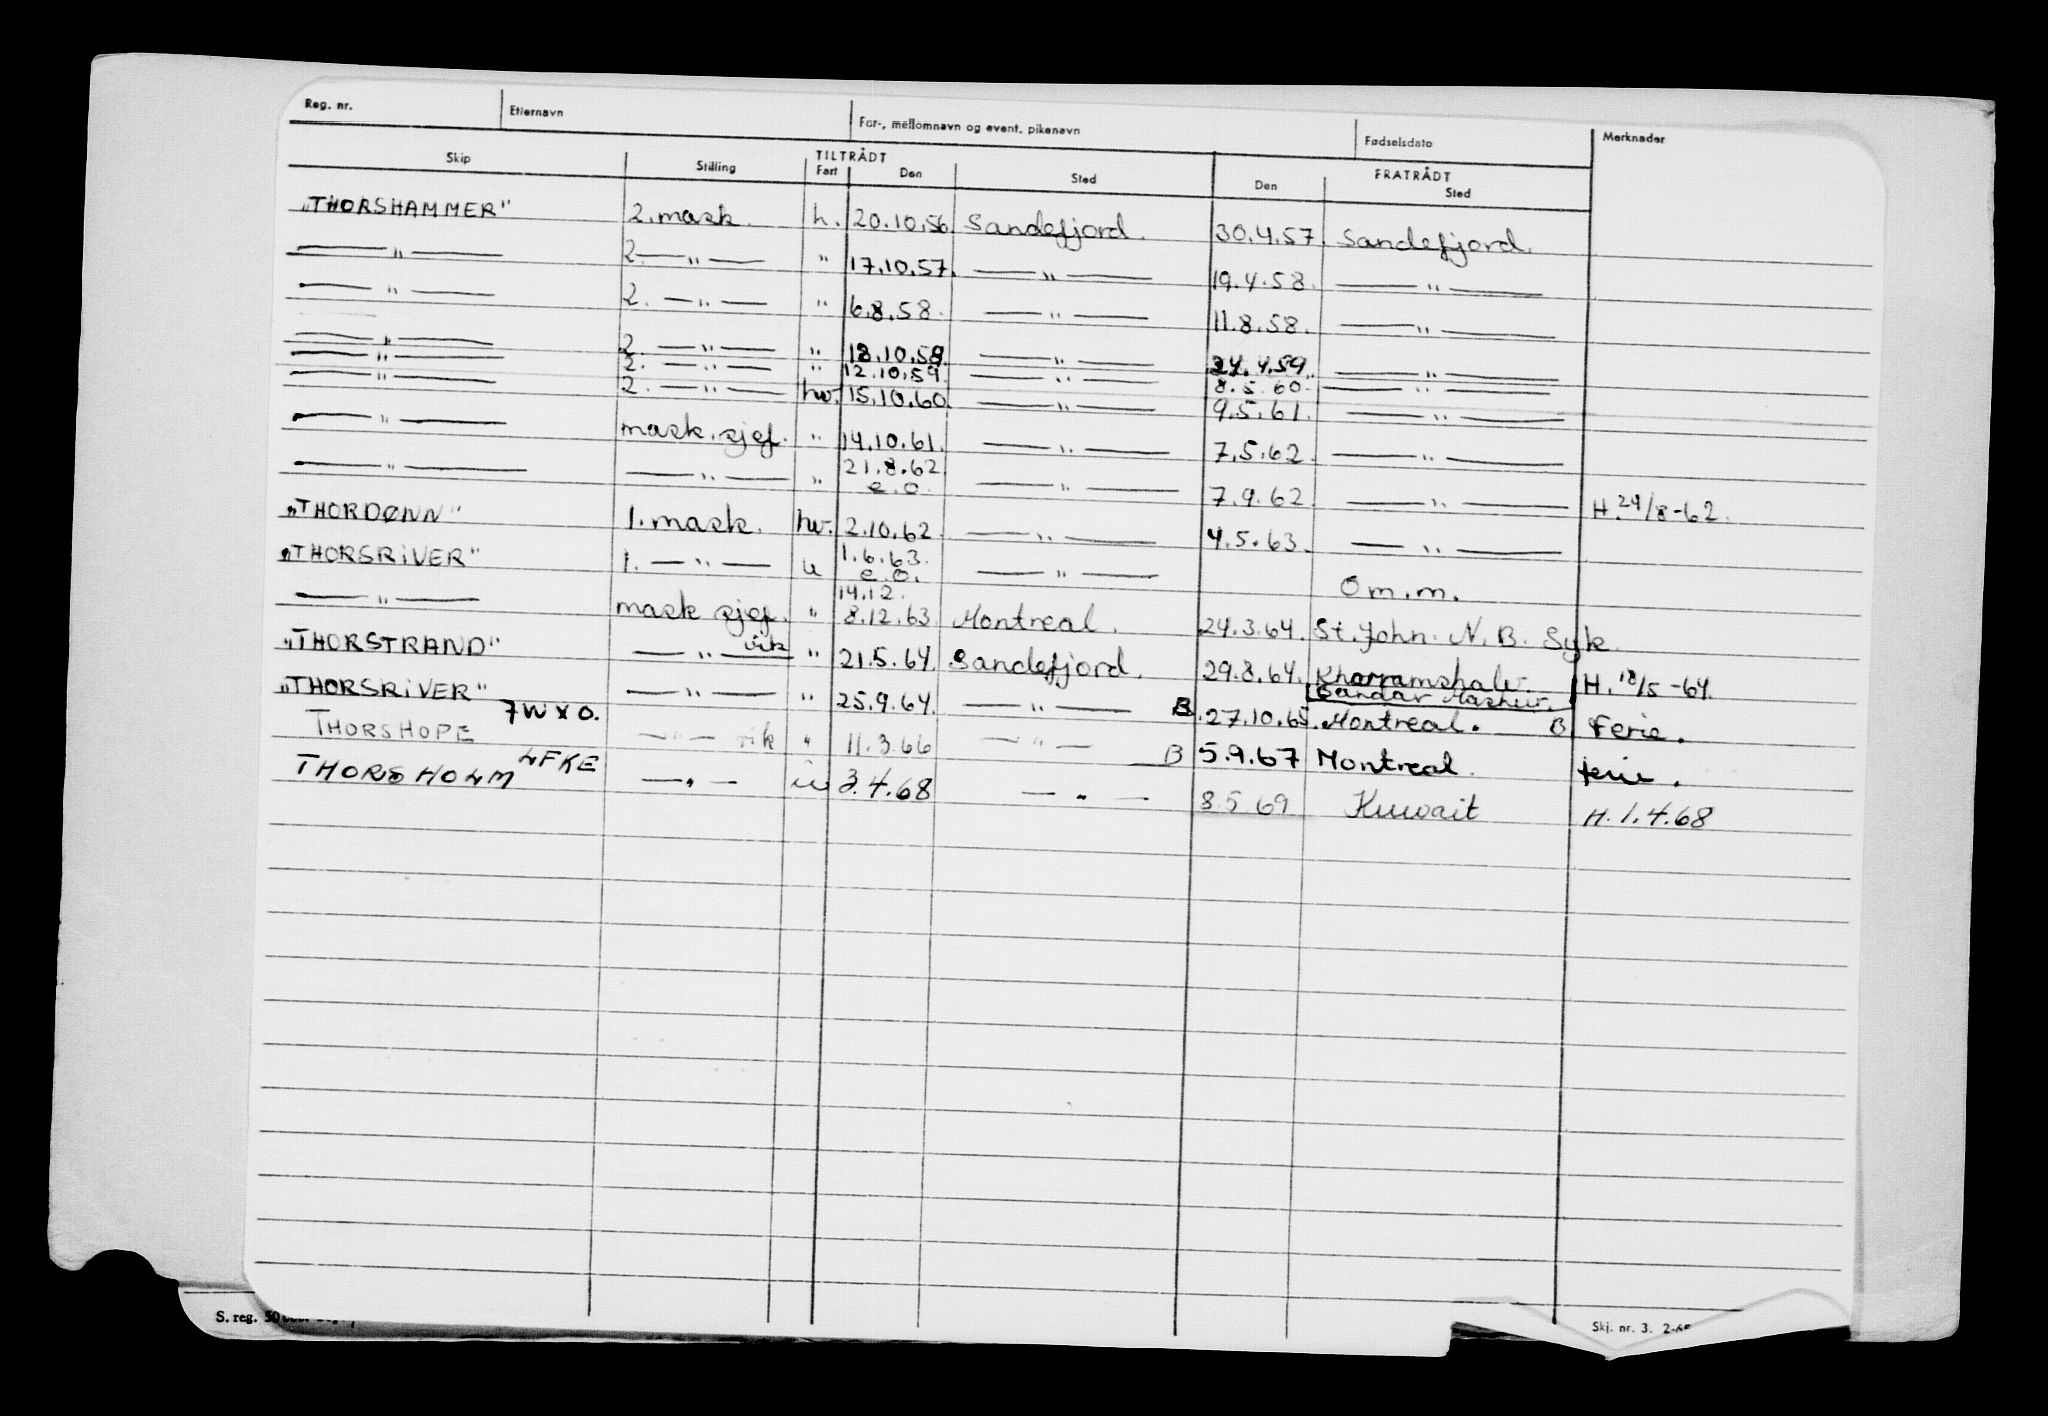 Reg. nr. Etternavn For-, mellomnavn og event. pikenavn Fødselsdato Merknader
Skip Stilling TILTRÅDT Fart Den Sted FRATRÅDT Den Sted
"THORSHAMMER" 2. mask. h. 20.10.56. Sandefjord. 30.4.57. Sandefjord.
— " — 2. — " — " 17.10.57. — " — 19.4.58. — " —
— " — 2. — " — " 6.8.58. — " — 11.8.58. — " —
— " — 2. — " — " 18.10.58. — " — 24.4.59. — " —
— " — 2. — " — " 12.10.59. — " — 8.5.60. — " —
— " — 2. — " — hv. 15.10.60. — " — 9.5.61. — " —
— " — mask.sjef. " 14.10.61. — " — 7.5.62. — " —
— " — — " — " 21.8.62 e.o. — " — 7.9.62 — " — H. 29/8-62.
"THORDØNN" 1. mask. hv. 2.10.62. — " — 4.5.63. — " —
"THORSRIVER" 1. — " — u 1.6.63. e.o. — " — Om.m.
— " — mask sjef. " 14.12. 8.12.63. Montreal. 24.3.64. St. John. N.B. Syk.
"THORSTRAND" — " — vik " 21.5.64. Sandefjord. 29.8.64. Khorramshalv. H. 18/5-64.
Bandar Mashur.
"THORSRIVER" — " — " 25.9.64. — " — B. 27.10.65. Montreal. B Ferie.
7WXO.
THORSHOPE — " — vik " 11.3.66 — " — B 5.9.67 Montreal. ferie.
LFKE
THORSHOLM — " — u 3.4.68 — " — 8.5.69 Kuwait H. 1.4.68
S. reg. 50
Skj. nr. 3. 2-65